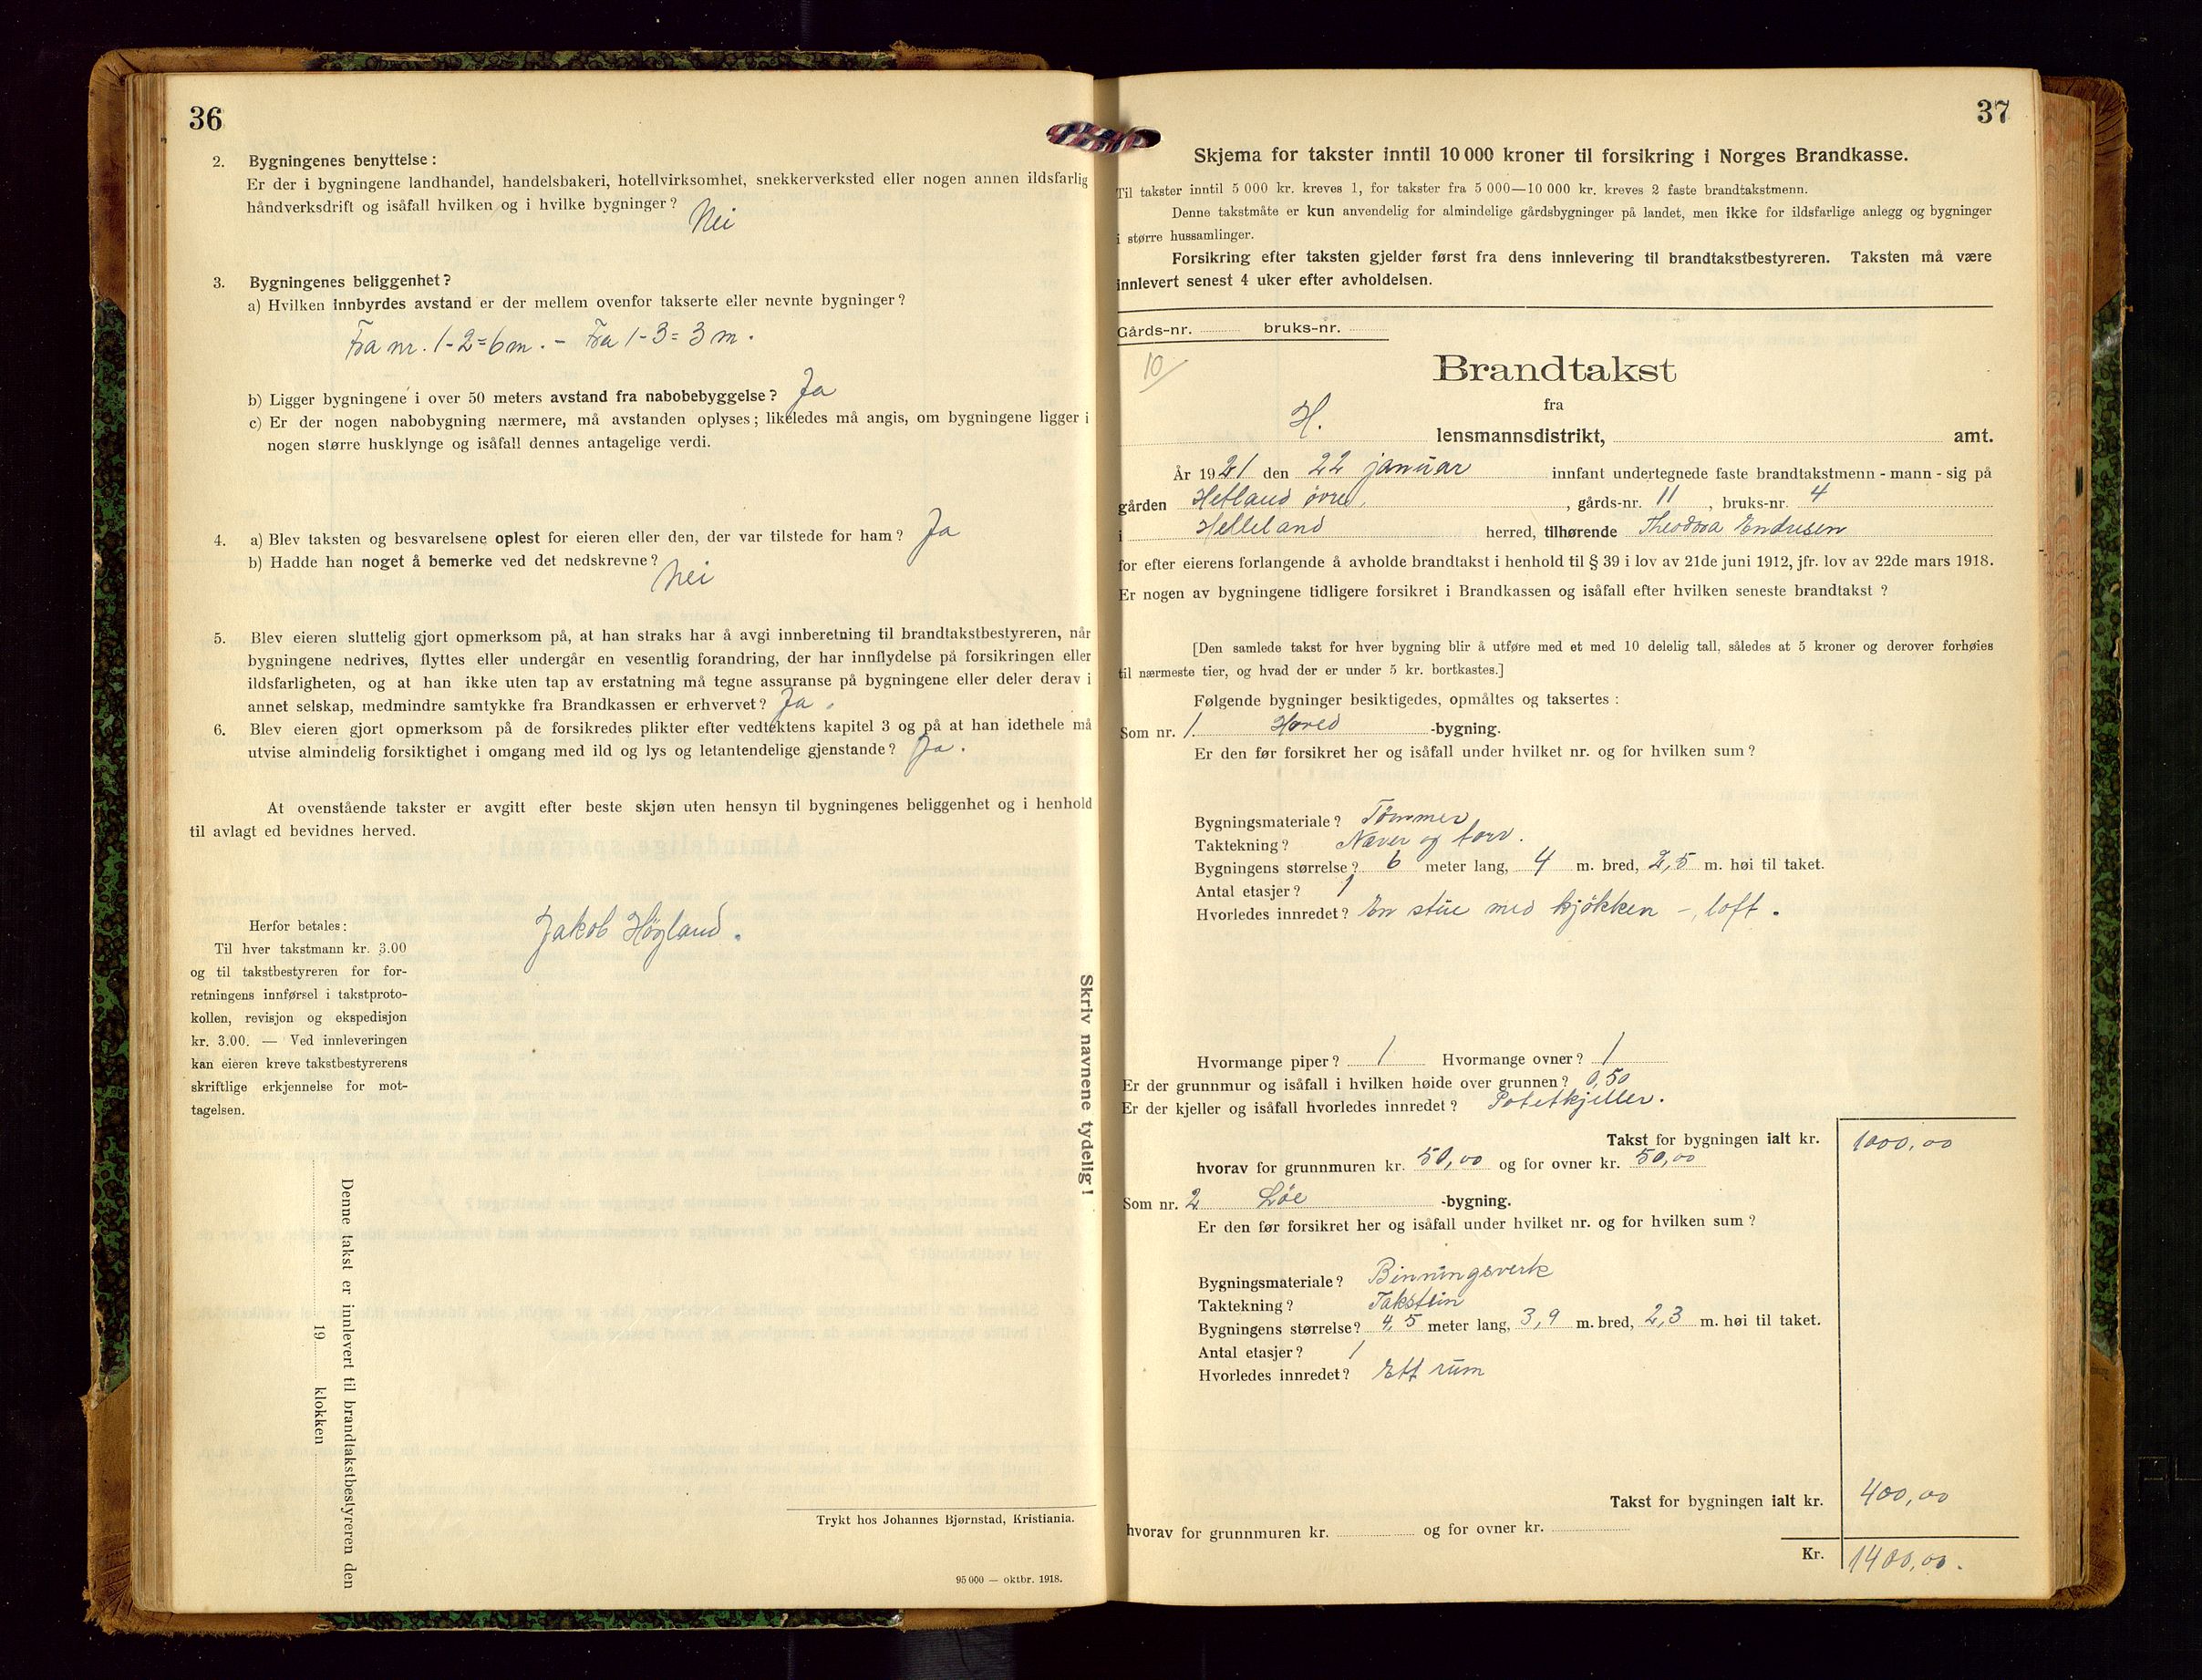 36
2. Bygningenes benyttelse:
Er der i bygningene landhandel, handelsbakeri, hotellvirksomhet, snekkerverksted eller nogen annen ildsfarlig
håndverksdrift og isåfall hvilken og i hvilke bygninger? Nei
3. Bygningenes beliggenhet?
a) Hvilken innbyrdes avstand er der mellem ovenfor takserte eller nevnte bygninger?
Fra nr. 1-2=6m. - Fra 1-3=3m.
b) Ligger bygningene i over 50 meters avstand fra nabobebyggelse? Ja
c) Er der nogen nabobygning nærmere, må avstanden oplyses; likeledes må angis, om bygningene ligger i
nogen større husklynge og isåfall dennes antagelige verdi.
4. a) Blev taksten og besvarelsene oplest for eieren eller den, der var tilstede for ham? Ja
b) Hadde han noget å bemerke ved det nedskrevne? Nei
5. Blev eieren sluttelig gjort opmerksom på, at han straks har å avgi innberetning til brandtakstbestyreren, når
bygningene nedrives, flyttes eller undergår en vesentlig forandring, der har innflydelse på forsikringen eller
ildsfarligheten, og at han ikke uten tap av erstatning må tegne assuranse på bygningene eller deler derav i
annet selskap, medmindre samtykke fra Brandkassen er erhvervet? Ja.
6. Blev eieren gjort opmerksom på de forsikredes plikter efter vedtektens kapitel 3 og på at han idethele må
utvise almindelig forsiktighet i omgang med ild og lys og letantendelige gjenstande? Ja.
At ovenstående takster er avgitt efter beste skjøn uten hensyn til bygningenes beliggenhet og i henhold
til avlagt ed bevidnes herved.
Jakob Høgland.
Herfor betales:
Til hver takstmann kr. 3.00
og til takstbestyreren for for-
retningens innførsel i takstproto-
kollen, revisjon og ekspedisjon
kr. 3.00. — Ved innleveringen
kan eieren kreve takstbestyrerens
skriftlige erkjennelse for mot-
tagelsen.
Skriv navnene tydelig!
Denne takst er innlevert til brandtakstbestyreren den
19 klokken
Trykt hos Johannes Bjørnstad, Kristiania.
95 000 — oktbr. 1918.
37
Skjema for takster inntil 10 000 kroner til forsikring i Norges Brandkasse.
Til takster inntil 5 000 kr. kreves 1, for takster fra 5 000—10 000 kr. kreves 2 faste brandtakstmenn.
Denne takstmåte er kun anvendelig for almindelige gårdsbygninger på landet, men ikke for ildsfarlige anlegg og bygninger
i større hussamlinger.
Forsikring efter taksten gjelder først fra dens innlevering til brandtakstbestyreren. Taksten må være
innlevert senest 4 uker efter avholdelsen.
Gårds-nr. bruks-nr.
10/
Brandtakst
fra
H. lensmannsdistrikt, amt.
År 1921 den 22 januar innfant undertegnede faste brandtakstmenn - mann - sig på
gården Hetland øvre, gårds-nr. 11, bruks-nr. 4
i Helleland herred, tilhørende Theodora Endresen
for efter eierens forlangende å avholde brandtakst i henhold til § 39 i lov av 21de juni 1912, jfr. lov av 22de mars 1918.
Er nogen av bygningene tidligere forsikret i Brandkassen og isåfall efter hvilken seneste brandtakst?
[Den samlede takst for hver bygning blir å utføre med et med 10 delelig tall, således at 5 kroner og derover forhøies
til nærmeste tier, og hvad der er under 5 kr. bortkastes.]
Følgende bygninger besiktigedes, opmåltes og taksertes:
Som nr. 1. Hoved -bygning.
Er den før forsikret her og isåfall under hvilket nr. og for hvilken sum?
Bygningsmateriale? Tømmer
Taktekning? Næver og torv.
Bygningens størrelse? 6 meter lang, 4 m. bred, 2,5 m. høi til taket.
Antal etasjer? 1
Hvorledes innredet? En stue med kjøkken -, loft.
Hvormange piper? 1 Hvormange ovner? 1
Er der grunnmur og isåfall i hvilken høide over grunnen? 0,50
Er der kjeller og isåfall hvorledes innredet? Potetkjeller.
Takst for bygningen ialt kr. 1000,00
hvorav for grunnmuren kr. 50,00 og for ovner kr. 50,00
Som nr. 2 Løe -bygning.
Er den før forsikret her og isåfall under hvilket nr. og for hvilken sum?
Bygningsmateriale? Binningsverk
Taktekning? Takstein
Bygningens størrelse? 4,5 meter lang, 3,9 m. bred, 2,3 m. høi til taket.
Antal etasjer? 1
Hvorledes innredet? Ett rum
Takst for bygningen ialt kr. 400,00
hvorav for grunnmuren kr. og for ovner kr.
Kr. 1400,00.